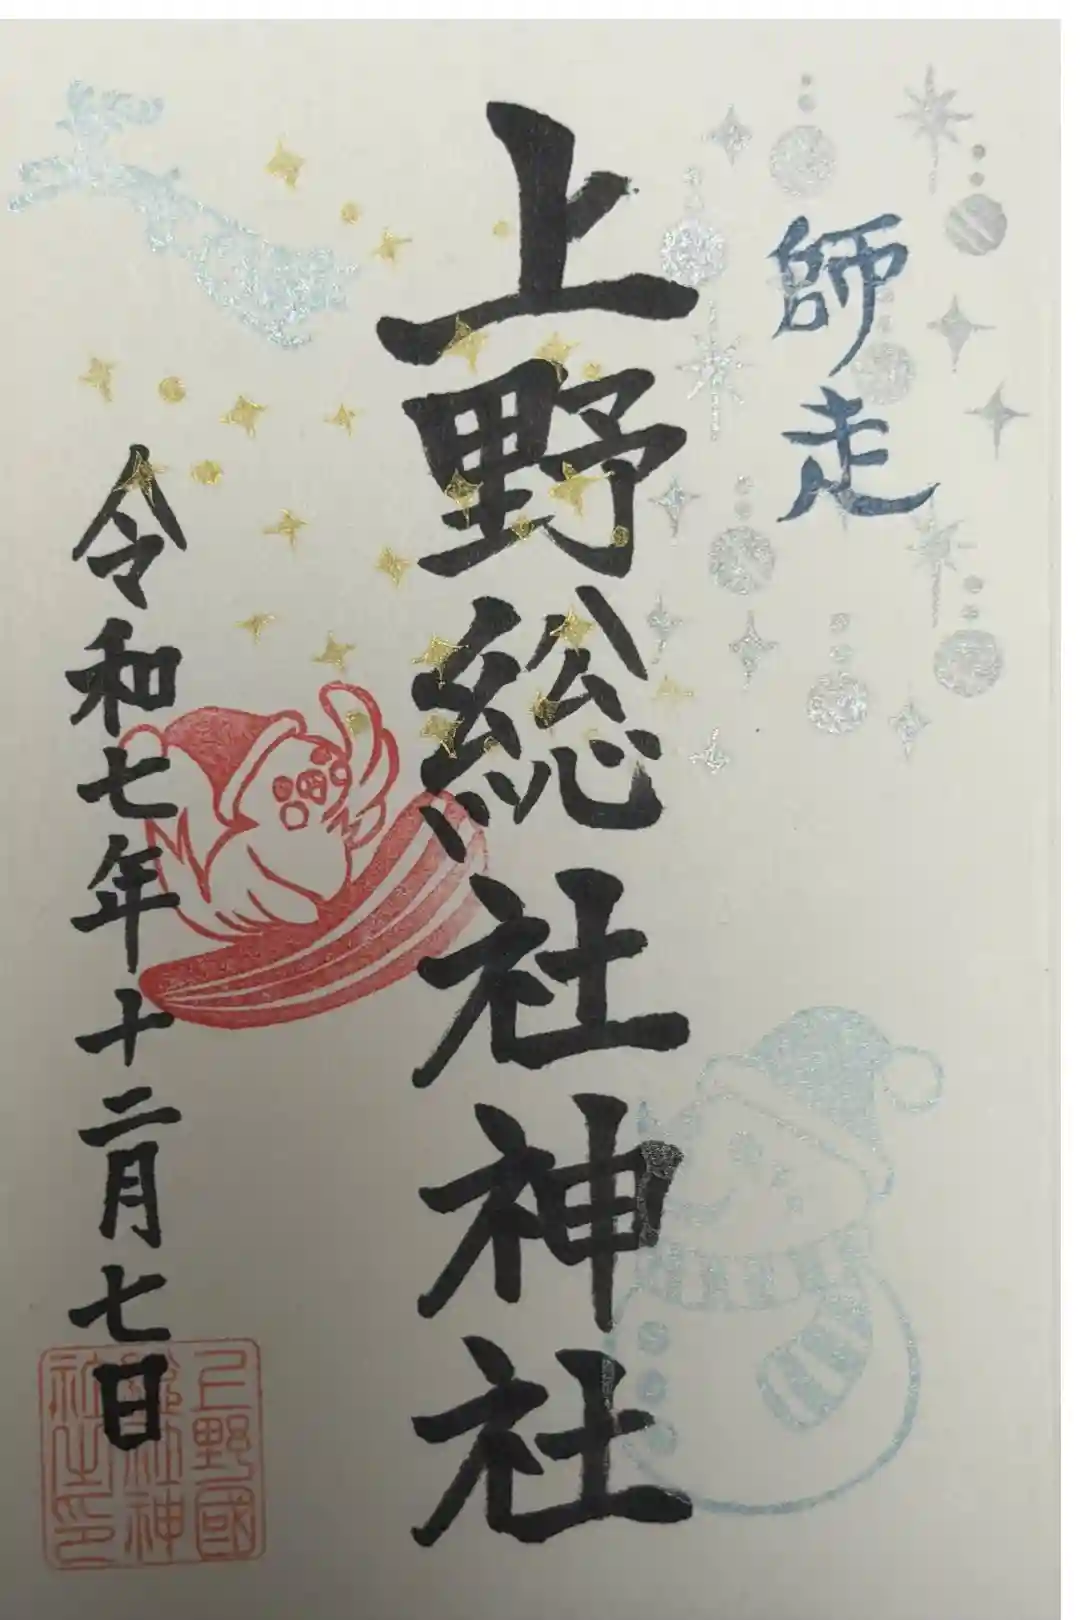 師走
上野総社神社
令和七年十二月七日
上野國
総社神
社之印